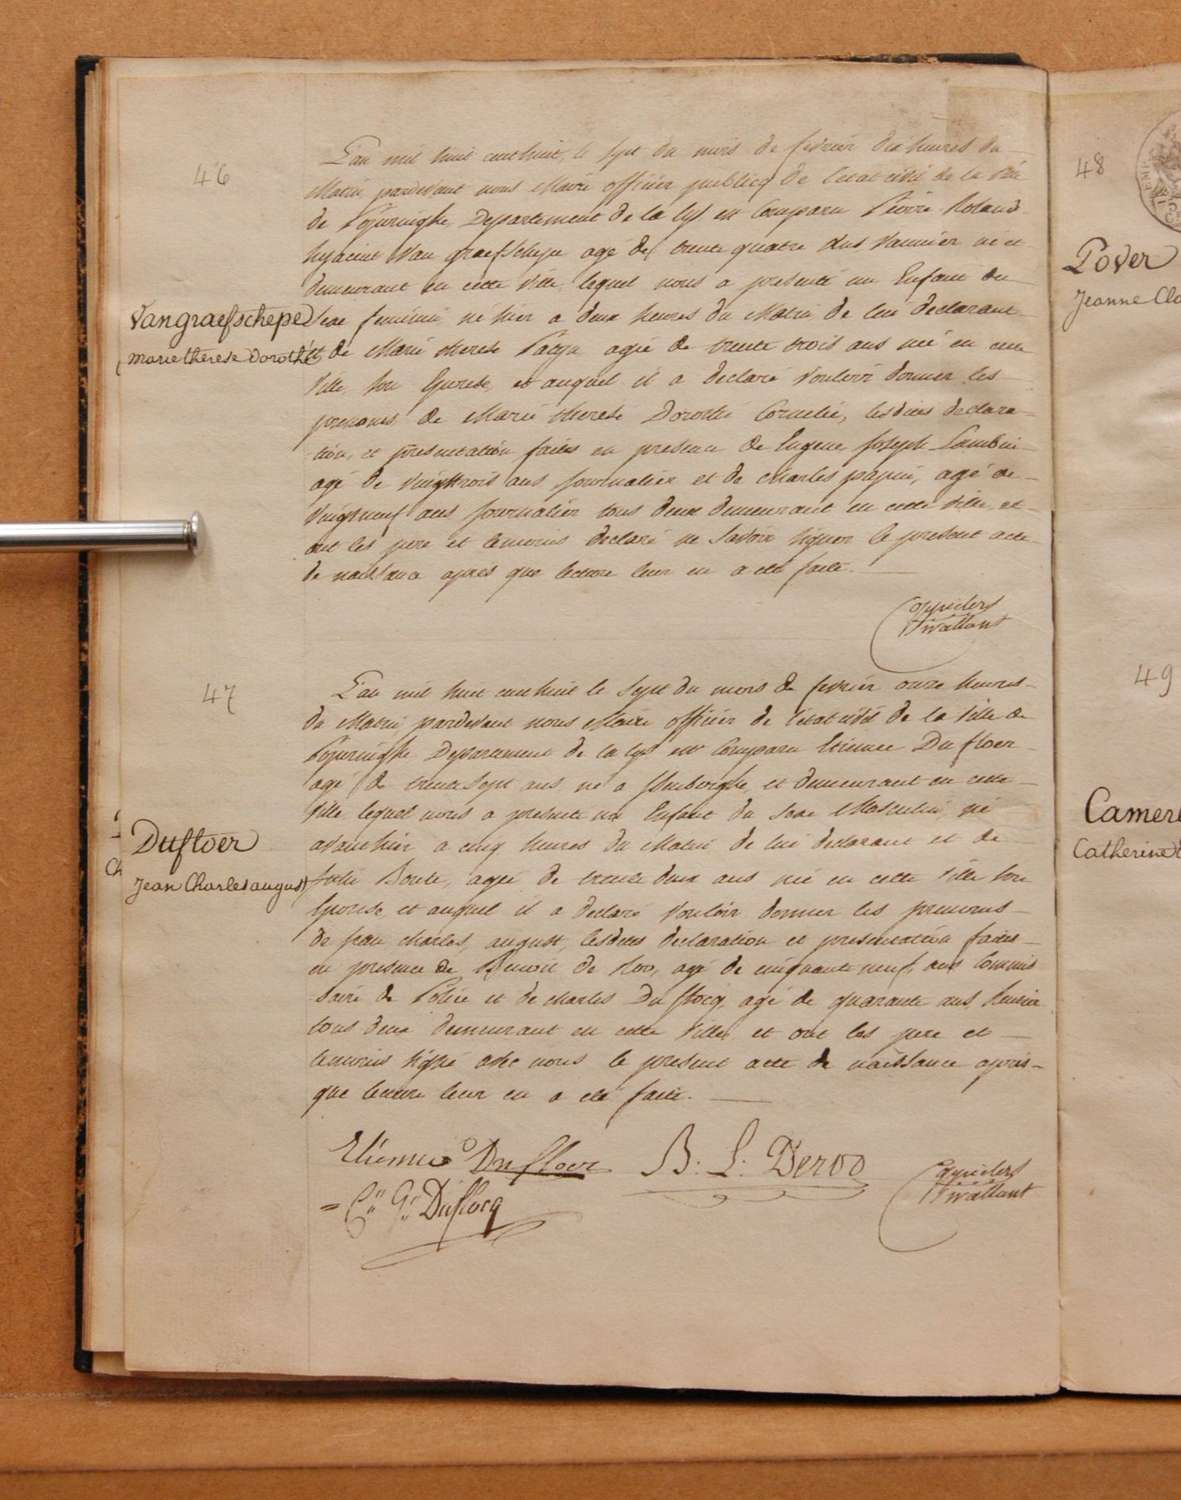 46
L'an mil huit cent huit, le sept du mois de fevrier dix heures du
Matin pardevant nous Maire officier publicq de l'etat civil de la ville
de Poperinghe Departement de la Lys est Comparu Pierre Roland
hyacint Van graefschepe agé de trente quatre ans Vannier né et
demeurant en cette Ville, lequel nous a presenté un Enfant du
Vangraefschepe
Sexe feminin né hier a deux heures du Matin de lui declarant
Marie thérèse Dorothé
et de Marie therese agée de trente trois ans née en cette
Ville son Epouse, et auquel il a declaré Vouloir donner les
prenoms de Marie therese Dorothé Cornelie, lesdites declara-
tion, et presentation faites en presence de Eugene Joseph
agé de Vingttrois ans Journalier et de Charles papin, agé de
Vingtneuf ans Journalier tous deux demeurant en cette Ville, et
ont les pere et temoins declaré ne Savoir signer le present acte
de naissance apres que lecture leur en a eté faite.
47
L'an mil huit cent huit le Sept du mois de fevrier onze heures
du Matin pardevant nous Maire officier de l'etat civil de la Ville de
Poperinghe Departement de la lys est Comparu Etienne Du floer
agé de trente sept ans, né a et demeurant en cette
Ville lequel nous a presenté un Enfant du Sexe Masculin, né
avanthier a cinq heures du Matin de lui declarant et de
Dufloer
Jean Charles august
Julie Boute, agée de trente deux ans née en cette Ville Son
Epouse, et auquel il a declaré Vouloir donner les prenoms
de Jean Charles, august, lesdites declaration et presentation faites
en presence de Benoit de Roo, agé de cinquante neuf ans Commis
saire de Police et de charles Du flocq agé de quarante ans
tous deux demeurant en cette Ville, et ont les pere et
temoins signé avec nous le present acte de naissance apres
que lecture leur en a eté faite.
Etienne Dufloer B: L: Deroo
Duflocq
48
Pover
Jeanne Cla
49
Camer
Catherine